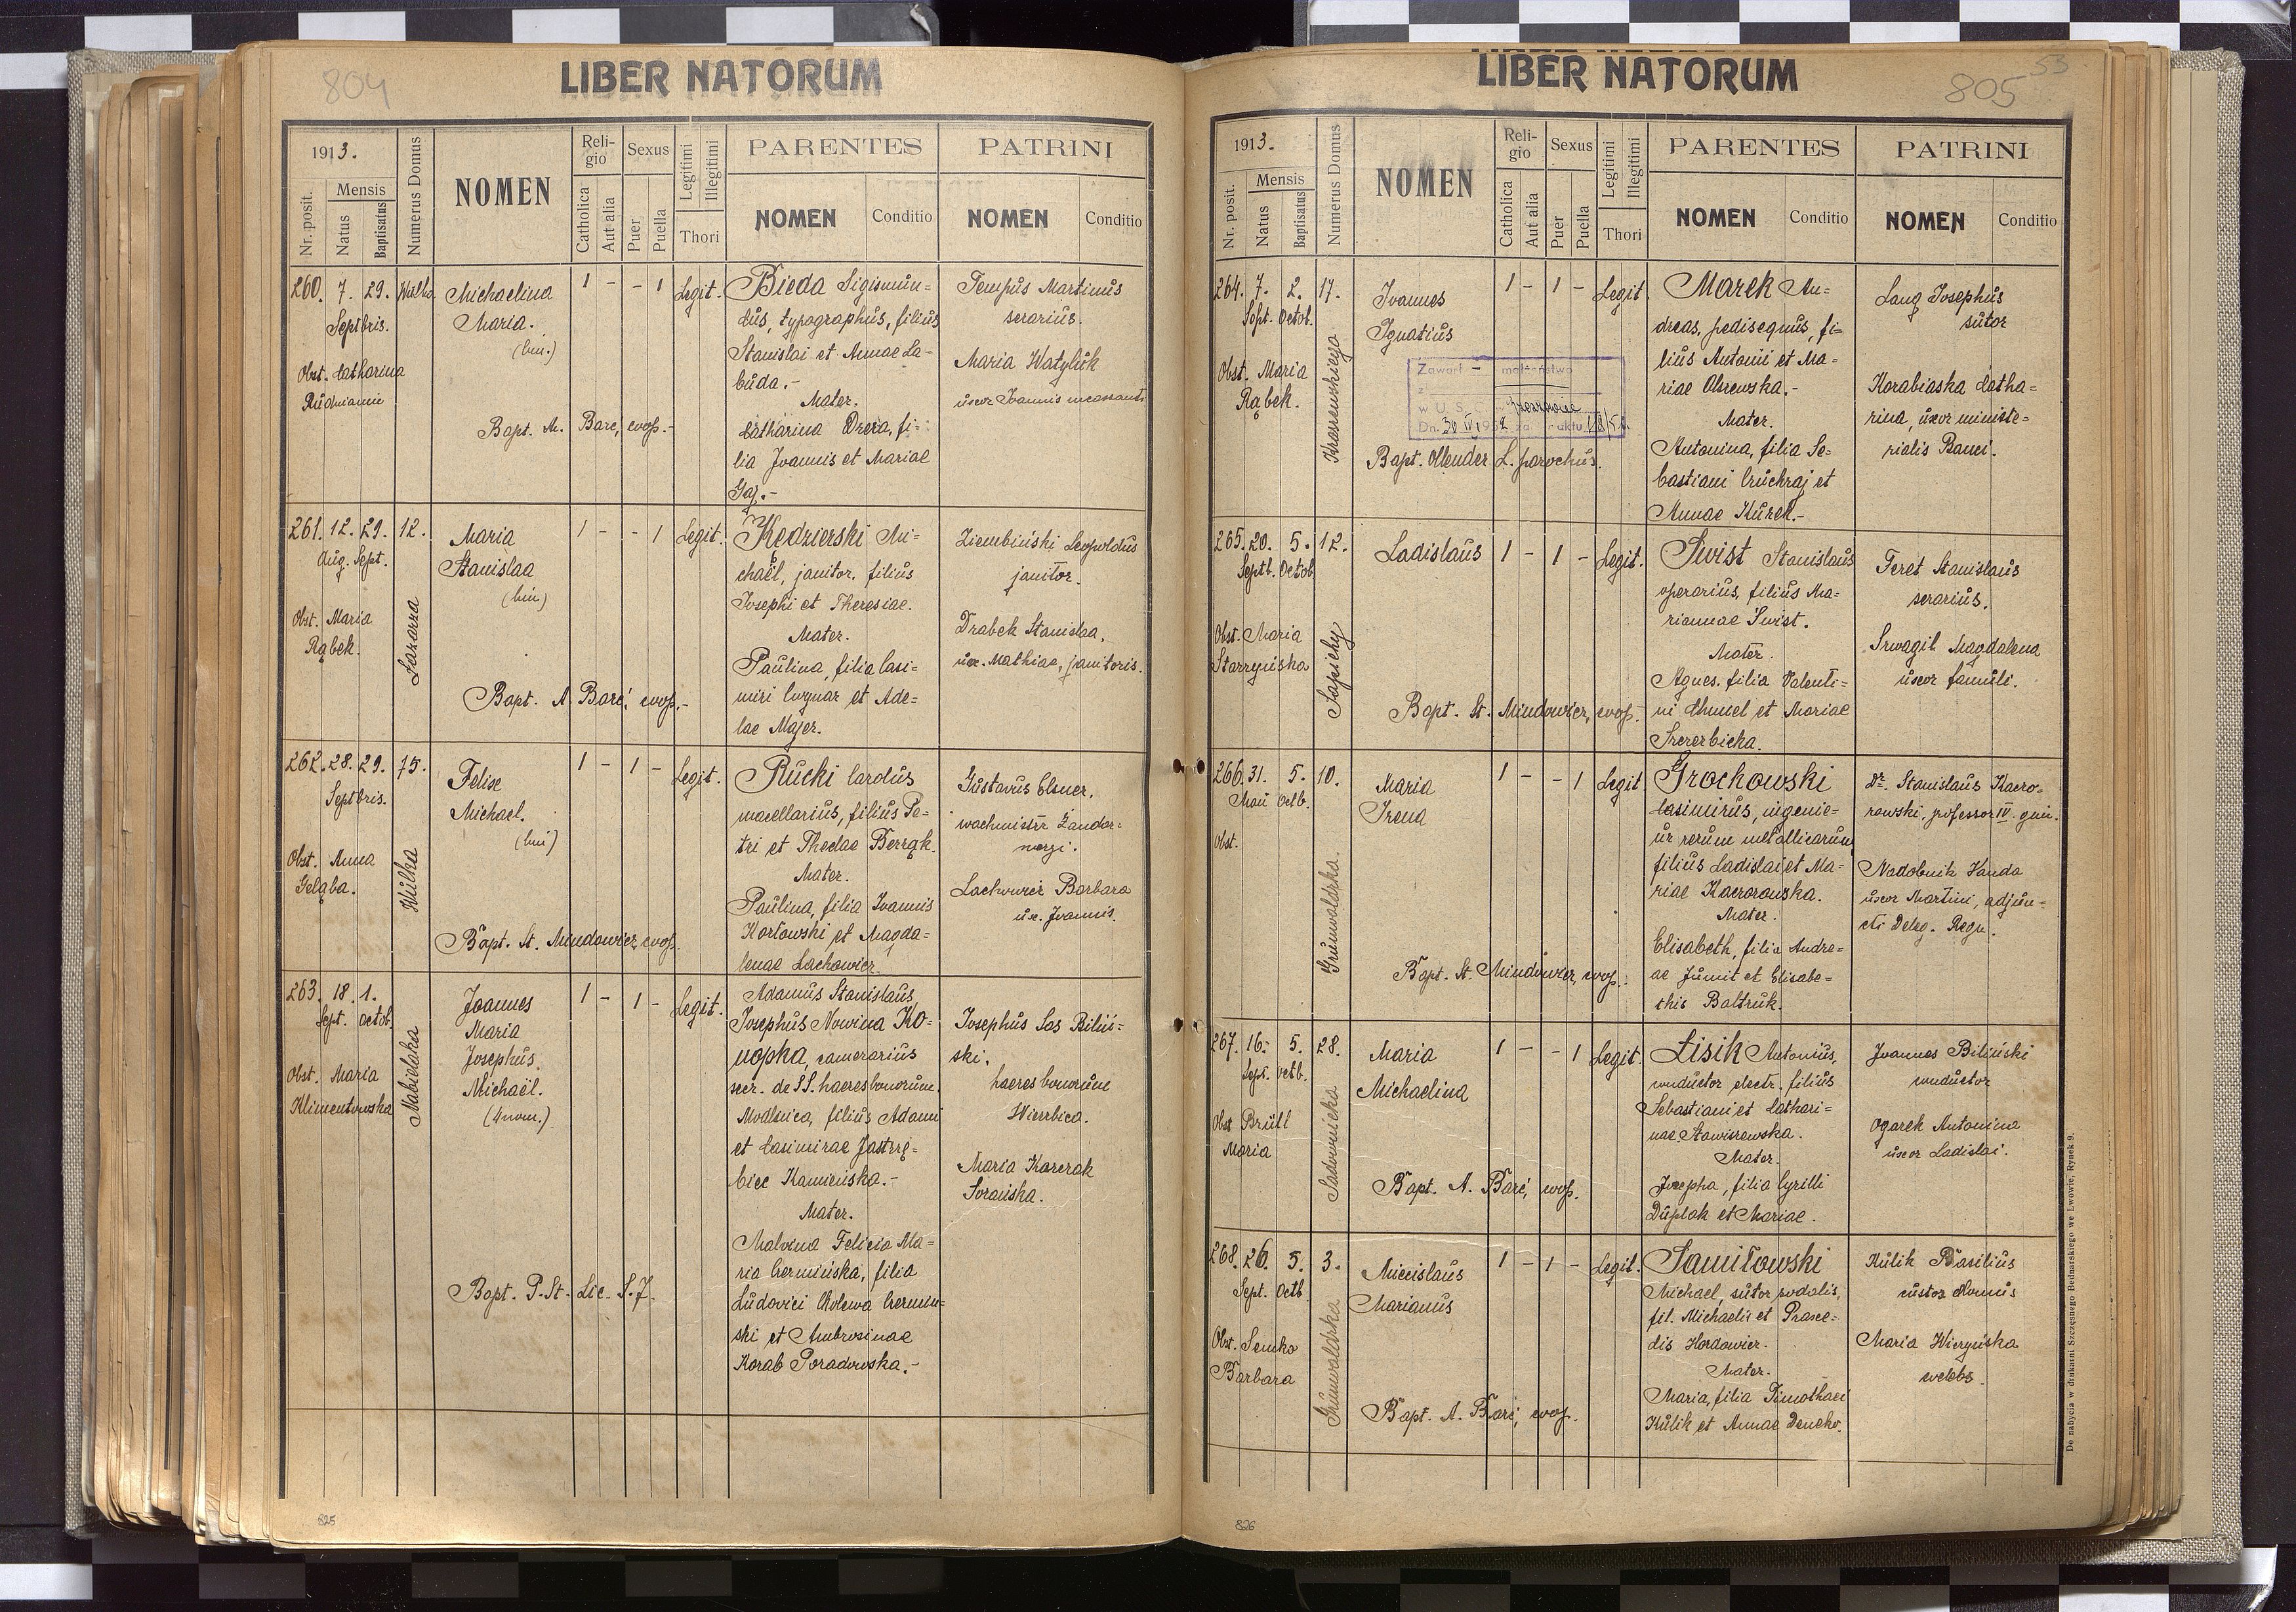 804
LIBER NATORUM
1913.
Nr. posit.
Mensis
Natus
Baptisatus
Numerus Domus
NOMEN
Religio
Catholica
Aut alia
Sexus
Puer
Puella
Legitimi
Illegitimi
Thori
PARENTES
NOMEN
Conditio
PATRINI
NOMEN
Conditio
260. 7. 29.
Septbris.
Obst. Catharina
Michaelina
Maria.
(bin.)
Bapt. A. Barć, coop.-
1 - - 1 Legit.
Bieda Sigismun=
dus, typographus, filius
Stanislai et Annae La-
buda.-
Mater.
Catharina Drera, fi-
lia Joannis et Mariae
Gaj.-
Tempus Martinus
serarius.
Maria Watyluk
uxor Joannis
261. 12. 29. 12.
Aug. Sept.
Obst. Maria
Rąbek.
Łazarza
Maria
Stanislaa
(bin)
Bapt. A. Barć, coop.-
1 - - 1 Legit.
Kędzierski Mi=
chaël, janitor, filius
Josephi et Theresiae.
Mater.
Paulina, filia Casi=
miri et Ade=
lae Majer.
Ziembiński Leopoldus
janitor.
Drabek Stanislaa,
ux. Mathiae, janitoris.
262. 28. 29. 75.
Septbris.
Obst. Anna
Geląba.
Wulka
Felix
Michael.
(bin)
Bapt. St. Mindowicz, coop.
1 - 1 - Legit.
Rucki Carolus
macellarius, filius Pe=
tri et Theclae
Mater.
Paulina, filia Joannis
Kozłowski et Magda=
lenae Lachowicz.
Gustavus Elsner,
wachmistrz żandar=
meryi.
Lachowicz Barbara
ux. Joannis.
263. 18. 1.
Sept. Octob.
Obst. Maria
Klimentowska
Nabielaka
Joannes
Maria
Josephus
Michaël.
(4 nom.)
Bapt. P. St. Lic. S. J.
1 - 1 - Legit.
Adamus Stanislaus
Josephus Nowina Ko=
nopka, camerarius
secr. de SS. haeres bonorum
Modlnica, filius Adami
et Casimirae Jastrzę=
biec Kamieńska.-
Mater.
Malvina Felicia Ma=
ria Czermińska, filia
Ludovici Cholewa Czermiń=
ski et Ambrosinae
Korab Poradowska.-
Josephus Sas Biliń=
ski,
haeres bonorum
Wierzbica.
Maria Karczak
825
805
53
LIBER NATORUM
1913.
Nr. posit.
Mensis
Natus
Baptisatus
Numerus Domus
NOMEN
Religio
Catholica
Aut alia
Sexus
Puer
Puella
Legitimi
Illegitimi
Thori
PARENTES
NOMEN
Conditio
PATRINI
NOMEN
Conditio
264. 7. 2. 17.
Sept. Octob.
Obst. Maria
Rąbek.
Kraszewskiego
Joannes
Ignatius
Zawarł - małżeństwo
z
w U. S. C.
Dn. 30 IV 1952 za Nr aktu
Bapt. Ollender L. parochus.
1 - 1 - Legit.
Marek An=
dreas, pedisequus, fi=
lius Antonii et Ma=
riae Olszewska.-
Mater.
Antonina, filia Se=
bastiani et
Annae Kurek.-
Lang Josephus
sutor
Korabiaska Catha=
rina, uxor ministe=
rialis Banci.
265. 20. 5. 12.
Septb. Octob.
Obst. Maria
Starzyńska
Sapiehy
Ladislaus
Bapt. St. Mindowicz, coop.
1 - 1 - Legit.
Świst Stanislaus
operarius, filius Ma=
riannae Świst.
Mater.
Agnes, filia Valenti=
ni Chmiel et Mariae
Szczerbicka.
Feret Stanislaus
serarius.
Srwagil Magdalena
uxor famuli.
266. 31. 5. 10.
Maii Octb.
Obst.
Grunwaldzka.
Maria
Irena
Bapt. St. Mindowicz, coop.
1 - - 1 Legit
Grochowski
Casimirus, ingenie=
ur rerum metallicarum
filius Ladislai et Ma=
riae Kaczorowska.
Mater.
Elisabeth, filia Andre=
ae Jumit et Elisabe=
this Baltruk.
Dr. Stanislaus Kaczo=
rowski, professor IV. gim.
Nadobnik Vanda
uxor Martini, adjun=
cti Deleg. Regn.
267. 16. 5. 28.
Sept. Octb.
Obst Brüll
Maria
Sadownicka
Maria
Michaelina
Bapt. A. Barć, coop.
1 - - 1 Legit.
Lisik Antonius,
conductor electr. filius
Sebastiani et Cathari=
nae Stawiszewska.
Mater.
Josepha, filia Cyrilli
Duplak et Mariae.
Joannes Biliński
conductor
Ogarek Antonina
uxor Ladislai.
268. 26. 5. 3.
Sept. Octb.
Obst. Senko
Barbara
Grunwaldzka
Miecislaus
Marianus
Bapt. A. Barć, coop.
1 - 1 - Legit.
Samiłowski
Michael, sutor sodalis,
fil. Michaelis et Praxe=
dis Hordowicz.
Mater.
Maria, filia Timothaei
Kulik et Annae Dencko.
Kulik Basilius
custos domus
Maria Wierzyńska
coelebs.
826
Do nabycia w drukarni Szczęsnego Bednarskiego we Lwowie, Rynek 9.